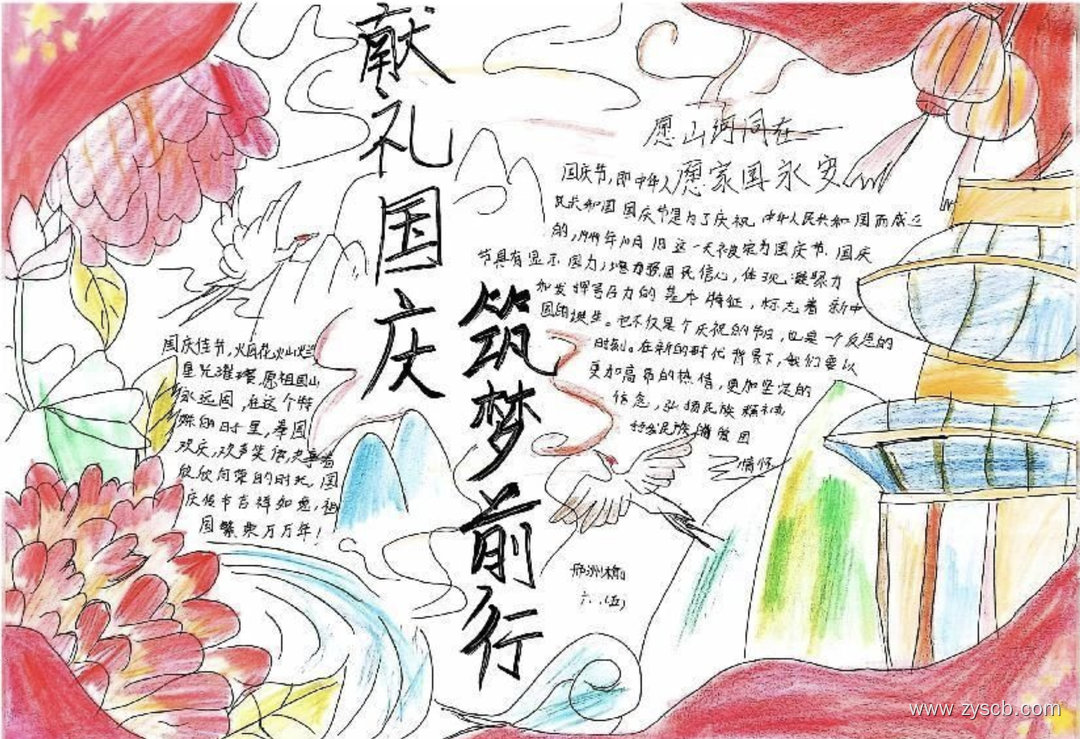 献礼国庆
筑梦前行
愿山河同在
愿家国永安
国庆节,即中华人
民共和国国庆节是为了庆祝中华人民共和国而成立
的,1949年10月1日这一天被定为国庆节,国庆
节具有显示国力,增强国民信心,体现凝聚力
和发挥号召力的基本特征,标志着新中
国的诞生。它不仅是个庆祝的节日,也是一个反思的
时刻。在新的时代背景下,我们要以
更加高昂的热情,更加坚定的
信念,弘扬民族精神,
民族
情怀
国庆佳节,火山火
星光璀璨愿祖国山
永远固,在这个特
殊的日子里,举国
欢庆,欢声笑
欣欣向荣的时光,国
庆佳节吉祥如意,祖
国繁荣万万年!
六.(五)
www.zyscb.com